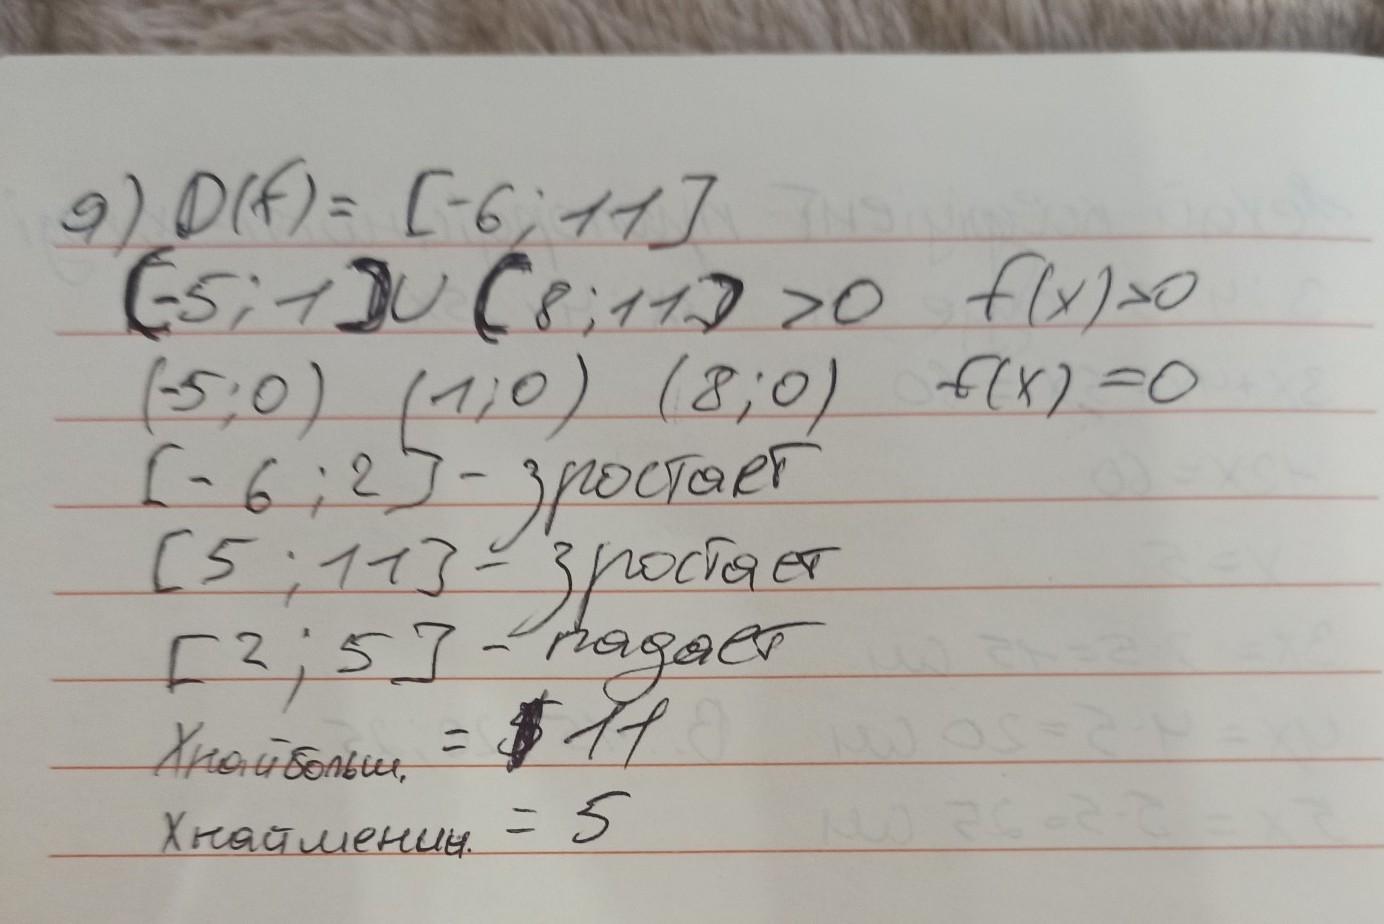 а) D(f) = [-6; 11]
(-5; 1) ∪ (8; 11) >0 f(x)>0
(-5; 0) (1; 0) (8; 0) f(x) = 0
[-6; 2] - зростает
[5; 11] - зростает
[2; 5] - падает
Xнайбольш. = 11
Xнайменш. = 5